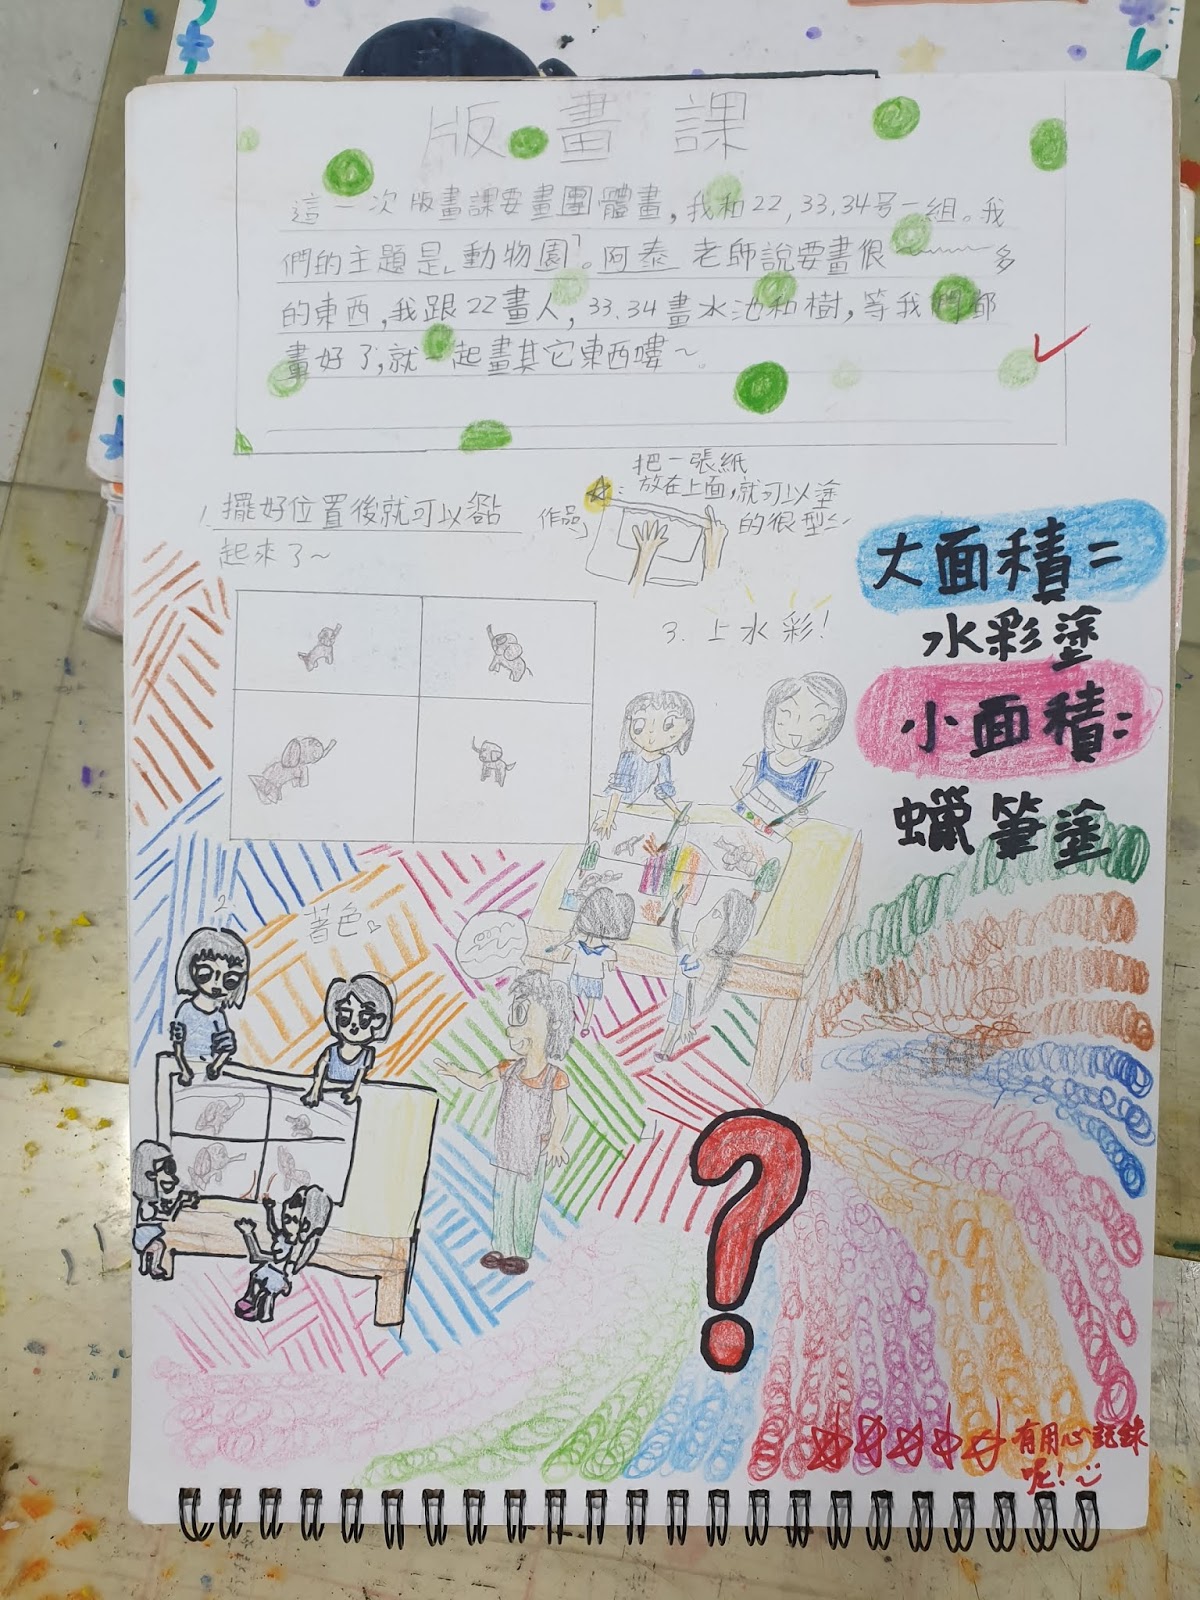 版畫課
這一次版畫課要畫團體畫，我和22,33.34号一組。我
們的主題是「動物園」。阿泰老師說要畫很～～～多
的東西，我跟22畫人，33.34畫水池和樹，等我們都
畫好了，就一起畫其它東西嘍～。
1. 擺好位置後就可以黏
起來了～
作品
☆：把一張紙
放在上面，就可以塗
的很型～
大面積=
水彩塗
小面積:
蠟筆塗
3. 上水彩!
2. 著色
?
有用心記錄
呢!